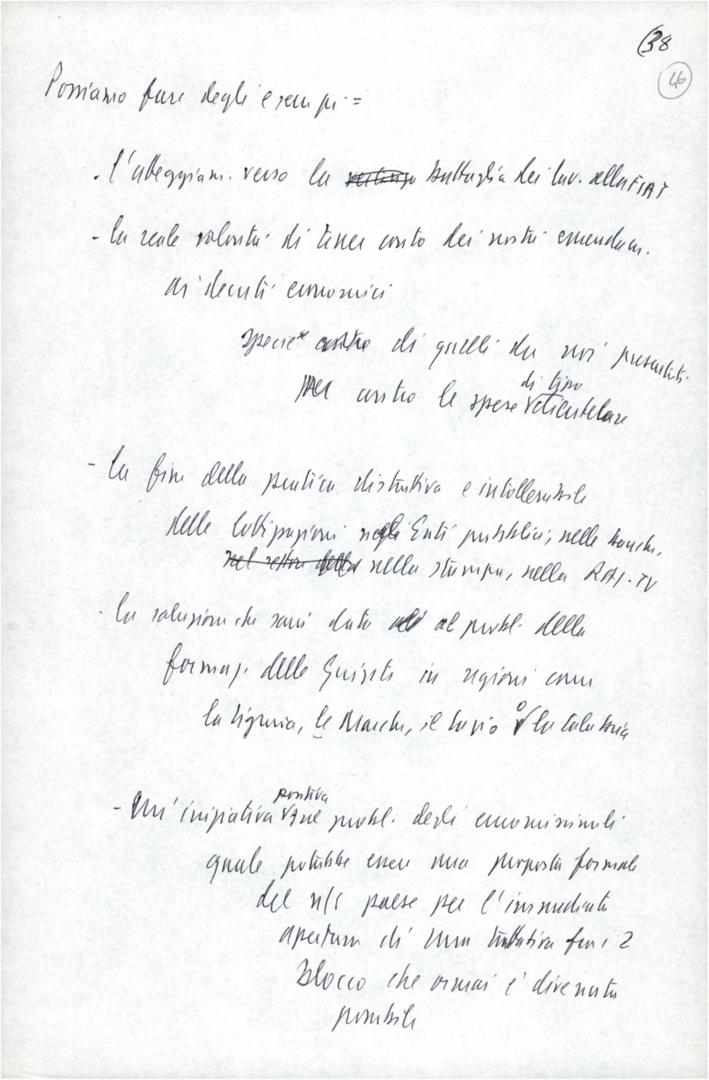 (38
46
Possiamo fare degli esempi =
- l'atteggiam. verso la battaglia dei lav. della FIAT
- la reale volontà di tener conto dei nostri emendam.
ai decreti economici
specie di quelli da noi presentati
per contro le spese di tipo clientelare
- la fine della pratica distruttiva e intollerabile
delle lottizzazioni negli Enti pubblici, nelle banche,
nel settore della nella stampa, nella RAI-TV
- la soluzione che sarà data al probl. della
formaz. delle Giunte in regioni come
la Liguria, le Marche, il Lazio o la Calabria
- Un'iniziativa positiva sul probl. degli euromissili
quale potrebbe essere una proposta formale
del n/s paese per l'immediata
apertura di una trattativa fra i 2
blocco che ormai è divenuta
possibile